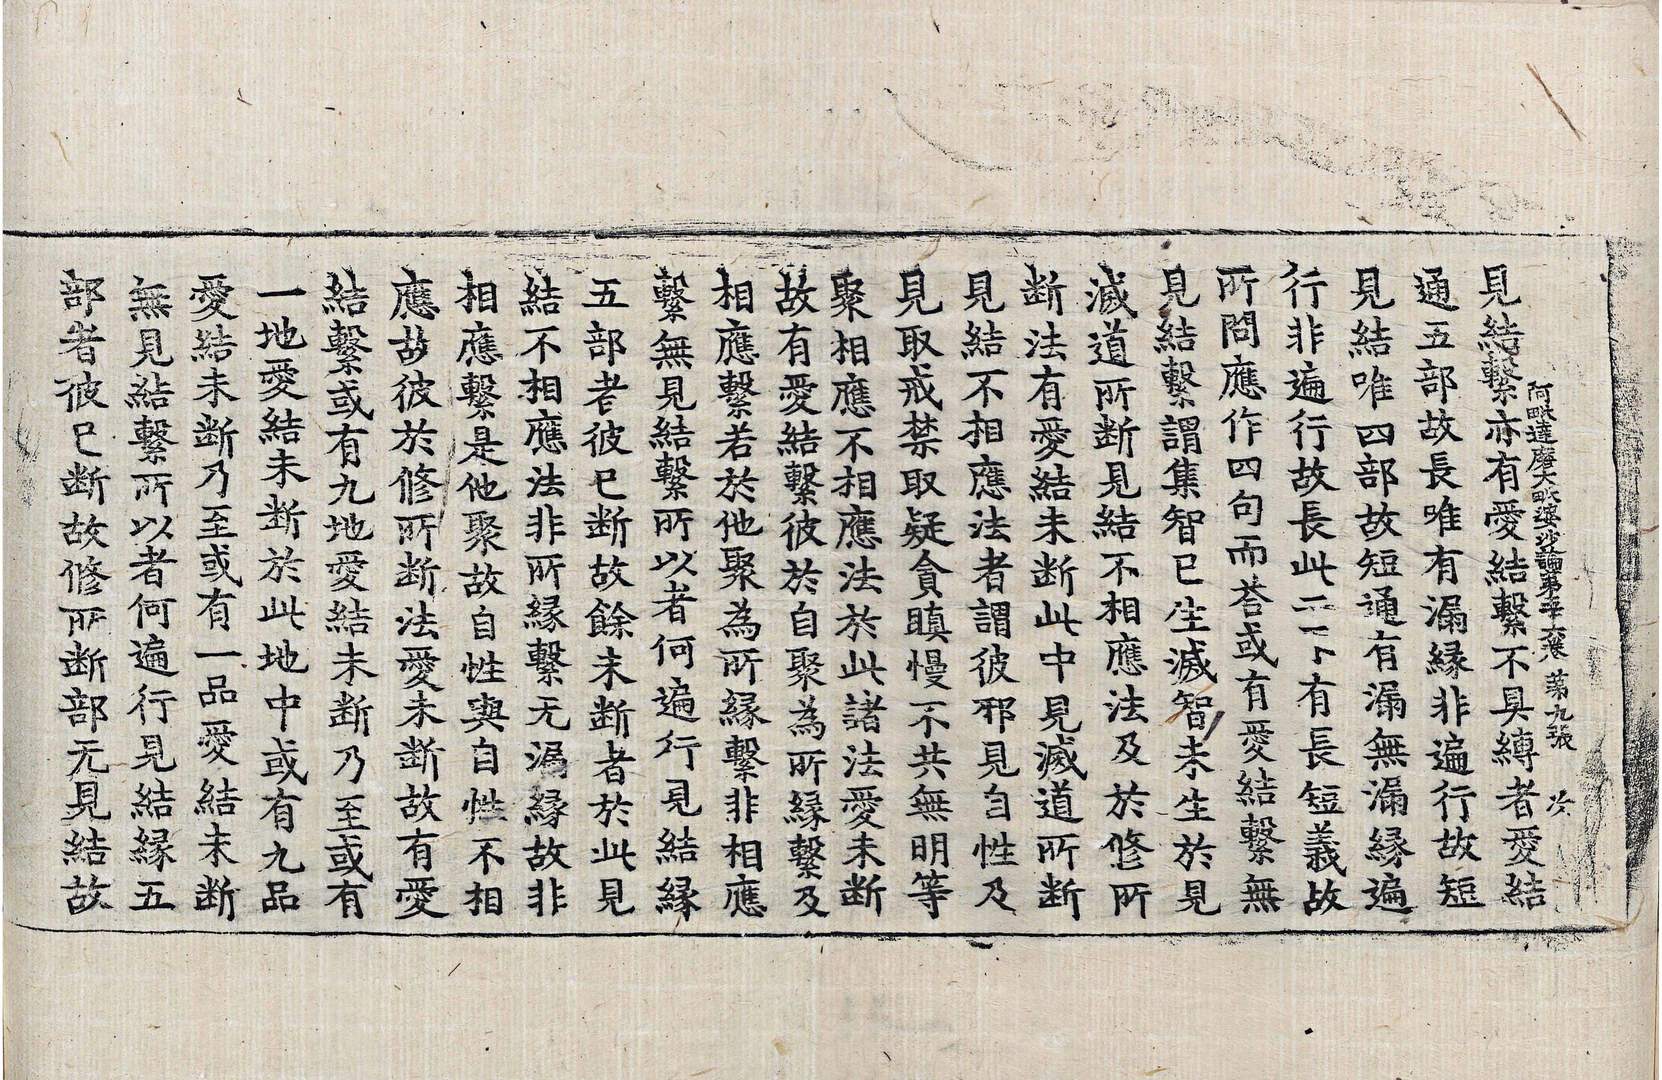 見結繫亦有愛結繫不具縛者愛結
阿毗達磨大毗婆沙論第五十六卷 第九張 次
通五部故長唯有漏緣非遍行故短
見結唯四部故短通有漏無漏緣遍
行非遍行故長此二互有長短義故
所問應作四句而荅或有愛結繫無
見結繫謂集智已生滅智未生於見
滅道所斷見結不相應法及於修所
斷法有愛結未斷此中見滅道所斷
見結不相應法者謂彼邪見自性及
見取戒禁取疑貪瞋慢不共無明等
聚相應不相應法於此諸法愛未斷
故有愛結繫彼於自聚為所緣繫及
相應繫若於他聚為所緣繫非相應
繫無見結繫所以者何遍行見結緣
五部者彼已斷故餘未斷者於此見
結不相應法非所緣繫无漏緣故非
相應繫是他聚故自性與自性不相
應故彼於修所斷法愛未斷故有愛
結繫或有九地愛結未斷乃至或有
一地愛結未斷於此地中或有九品
愛結未斷乃至或有一品愛結未斷
無見結繫所以者何遍行見結緣五
部者彼已斷故修所斷部无見結故